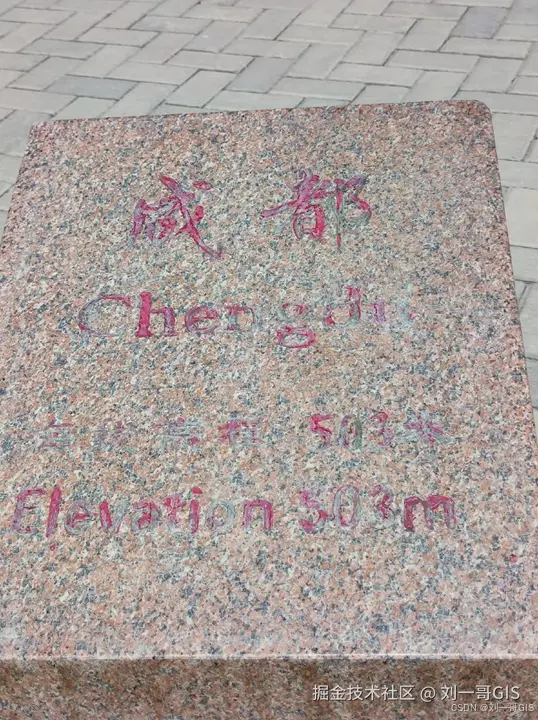 成都
Chengdu
503米
Elevation 503m
掘金技术社区 @ 刘一哥GIS
CSDN @刘一哥GIS